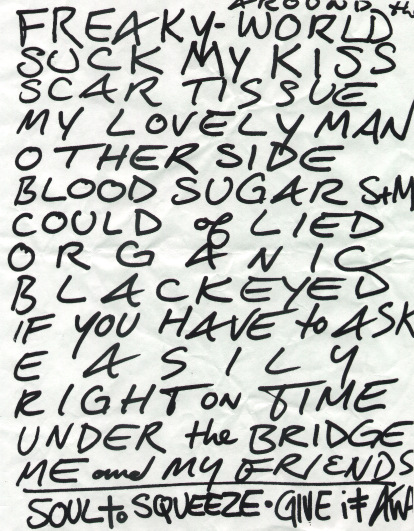 AROUND the
FREAKY-WORLD
SUCK MY KISS
SCAR TISSUE
MY LOVELY MAN
OTHERSIDE
BLOOD SUGAR S+M
COULD of LIED
ORGANIC
BLACKEYED
IF YOU HAVE to ASK
EASILY
RIGHT ON TIME
UNDER the BRIDGE
ME and MY FRIENDS
SOUL to SQUEEZE·GIVE it AW